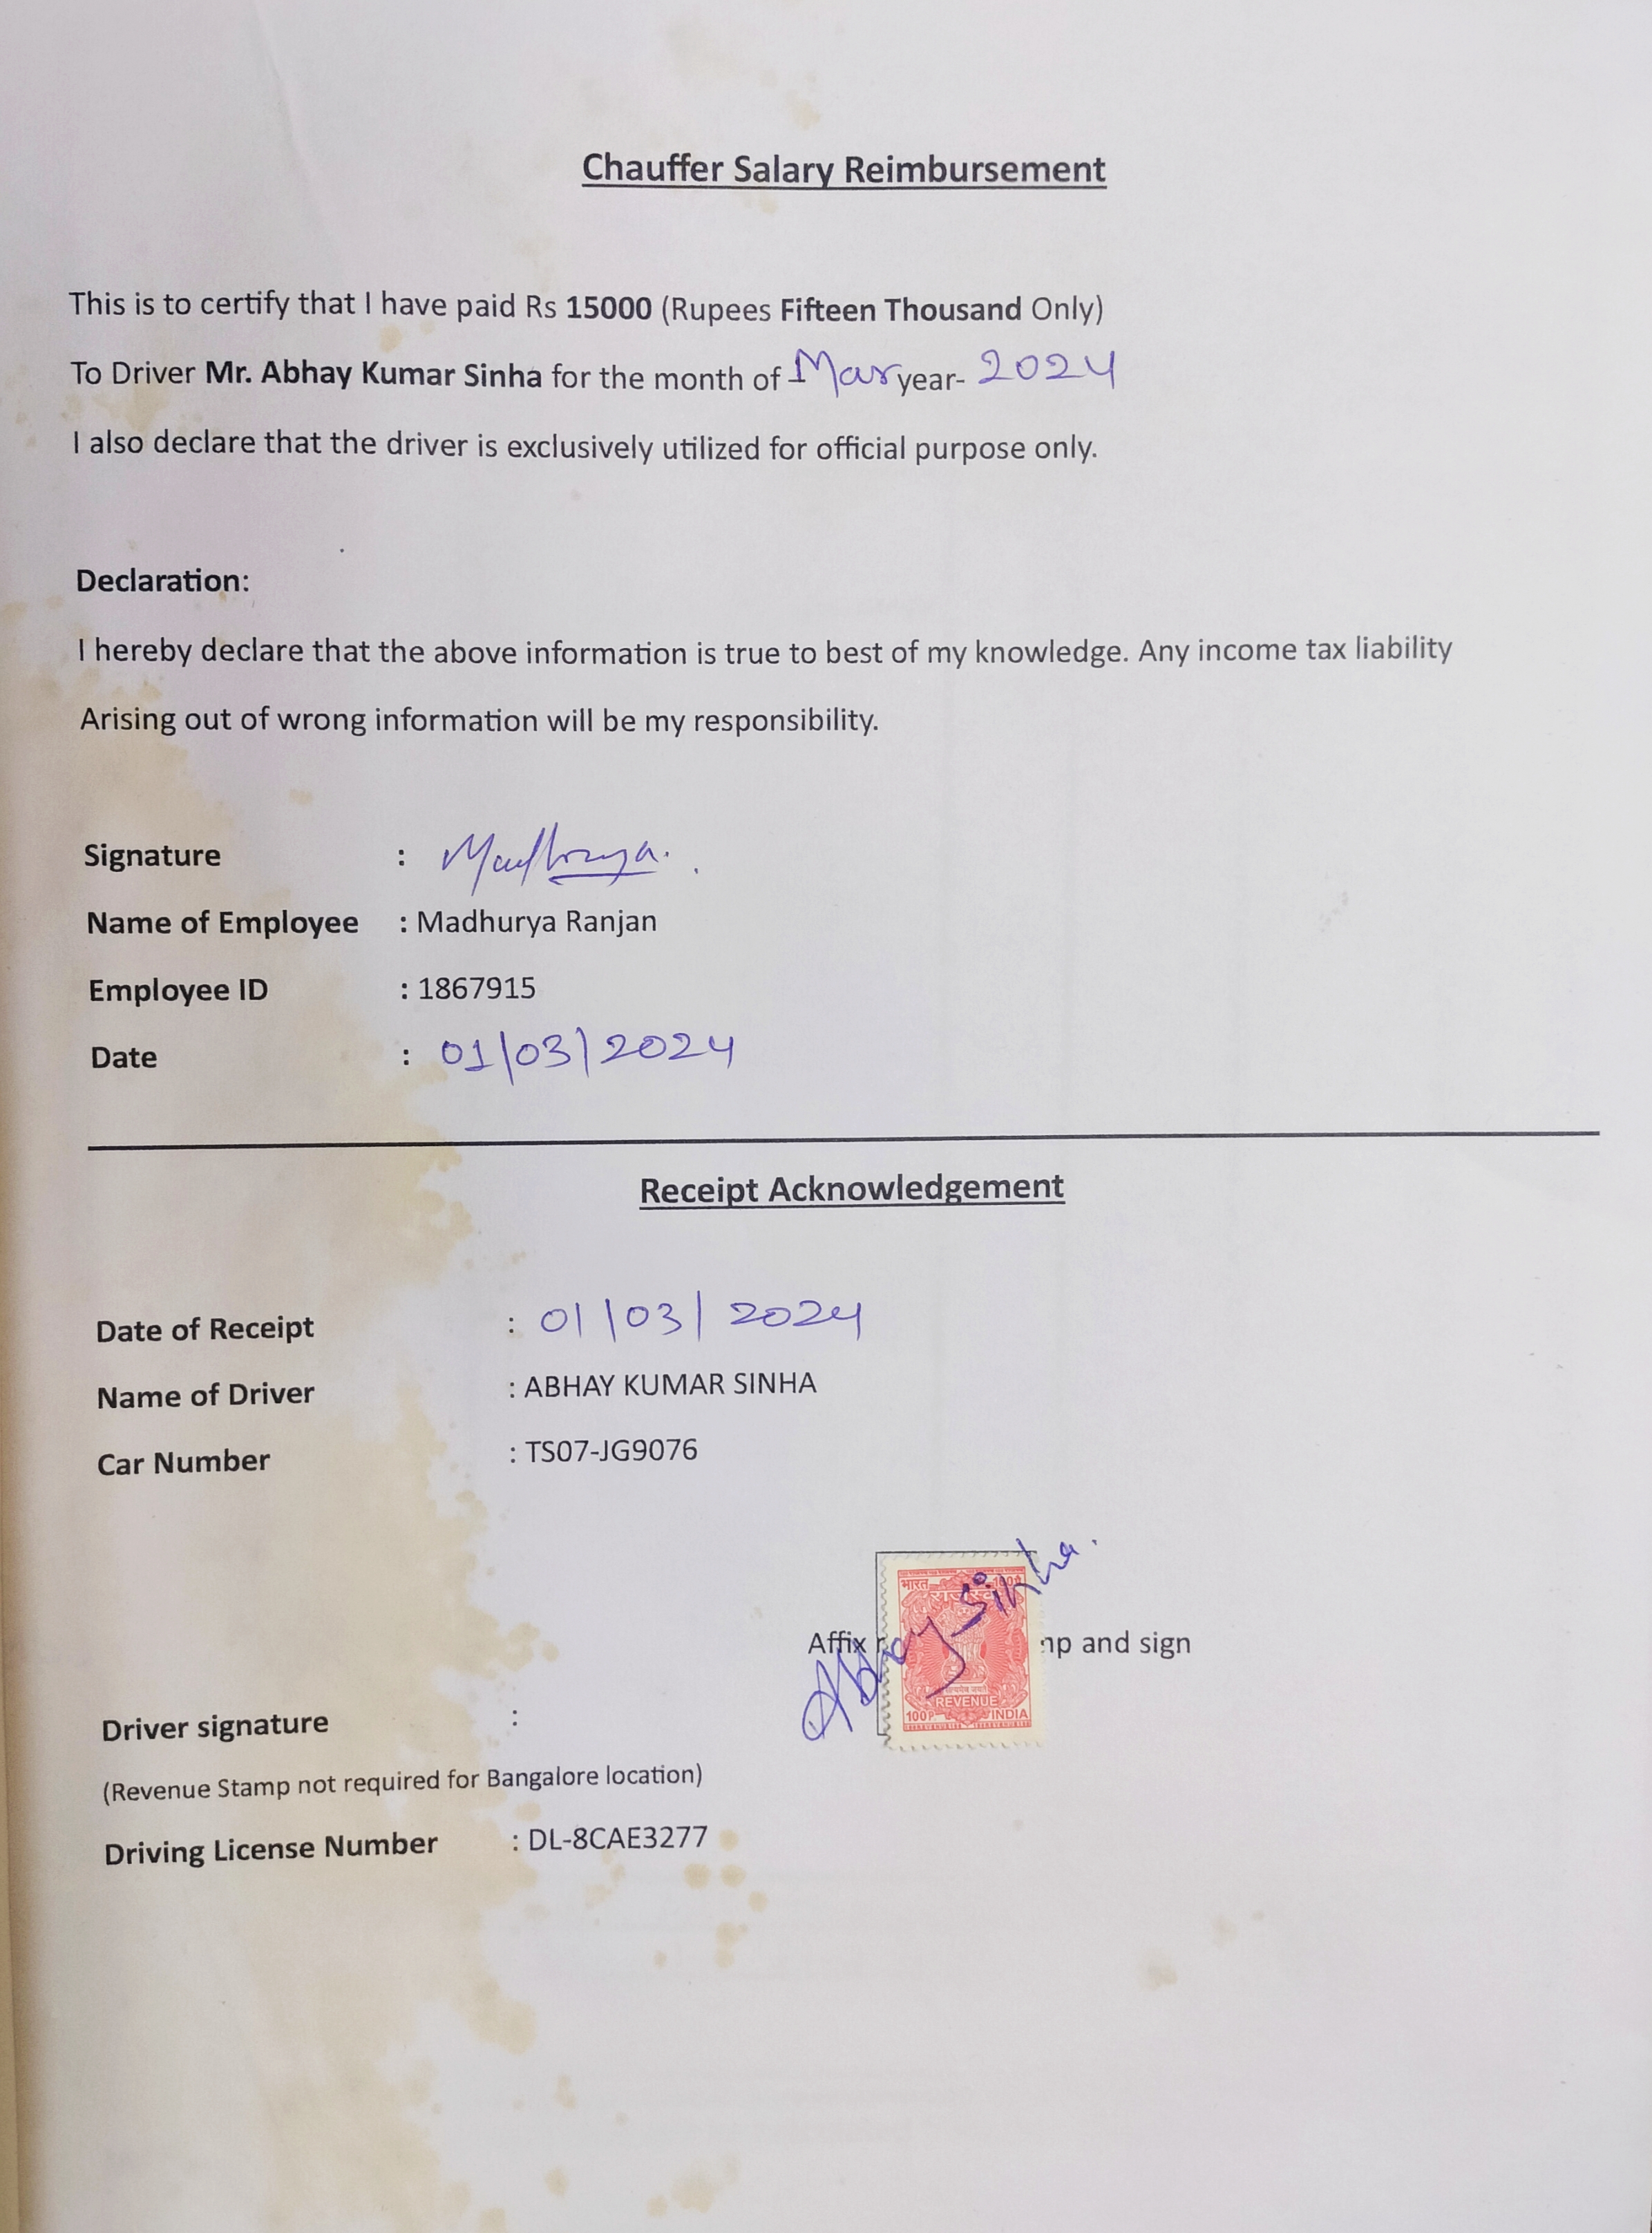 Chauffer Salary Reimbursement
This is to certify that I have paid Rs 15000 (Rupees Fifteen Thousand Only)
To Driver Mr. Abhay Kumar Sinha for the month of Mar year- 2024
I also declare that the driver is exclusively utilized for official purpose only.
Declaration:
I hereby declare that the above information is true to best of my knowledge. Any income tax liability
Arising out of wrong information will be my responsibility.
Signature : Madhurya.
Name of Employee : Madhurya Ranjan
Employee ID : 1867915
Date : 01/03/2024
Receipt Acknowledgement
Date of Receipt : 01/03/2024
Name of Driver : ABHAY KUMAR SINHA
Car Number : TS07-JG9076
भारत 100P
राजस्व
Affix np and sign
Abhay Sinha.
सत्यमेव जयते
REVENUE
100P. INDIA
Driver signature :
(Revenue Stamp not required for Bangalore location)
Driving License Number : DL-8CAE3277